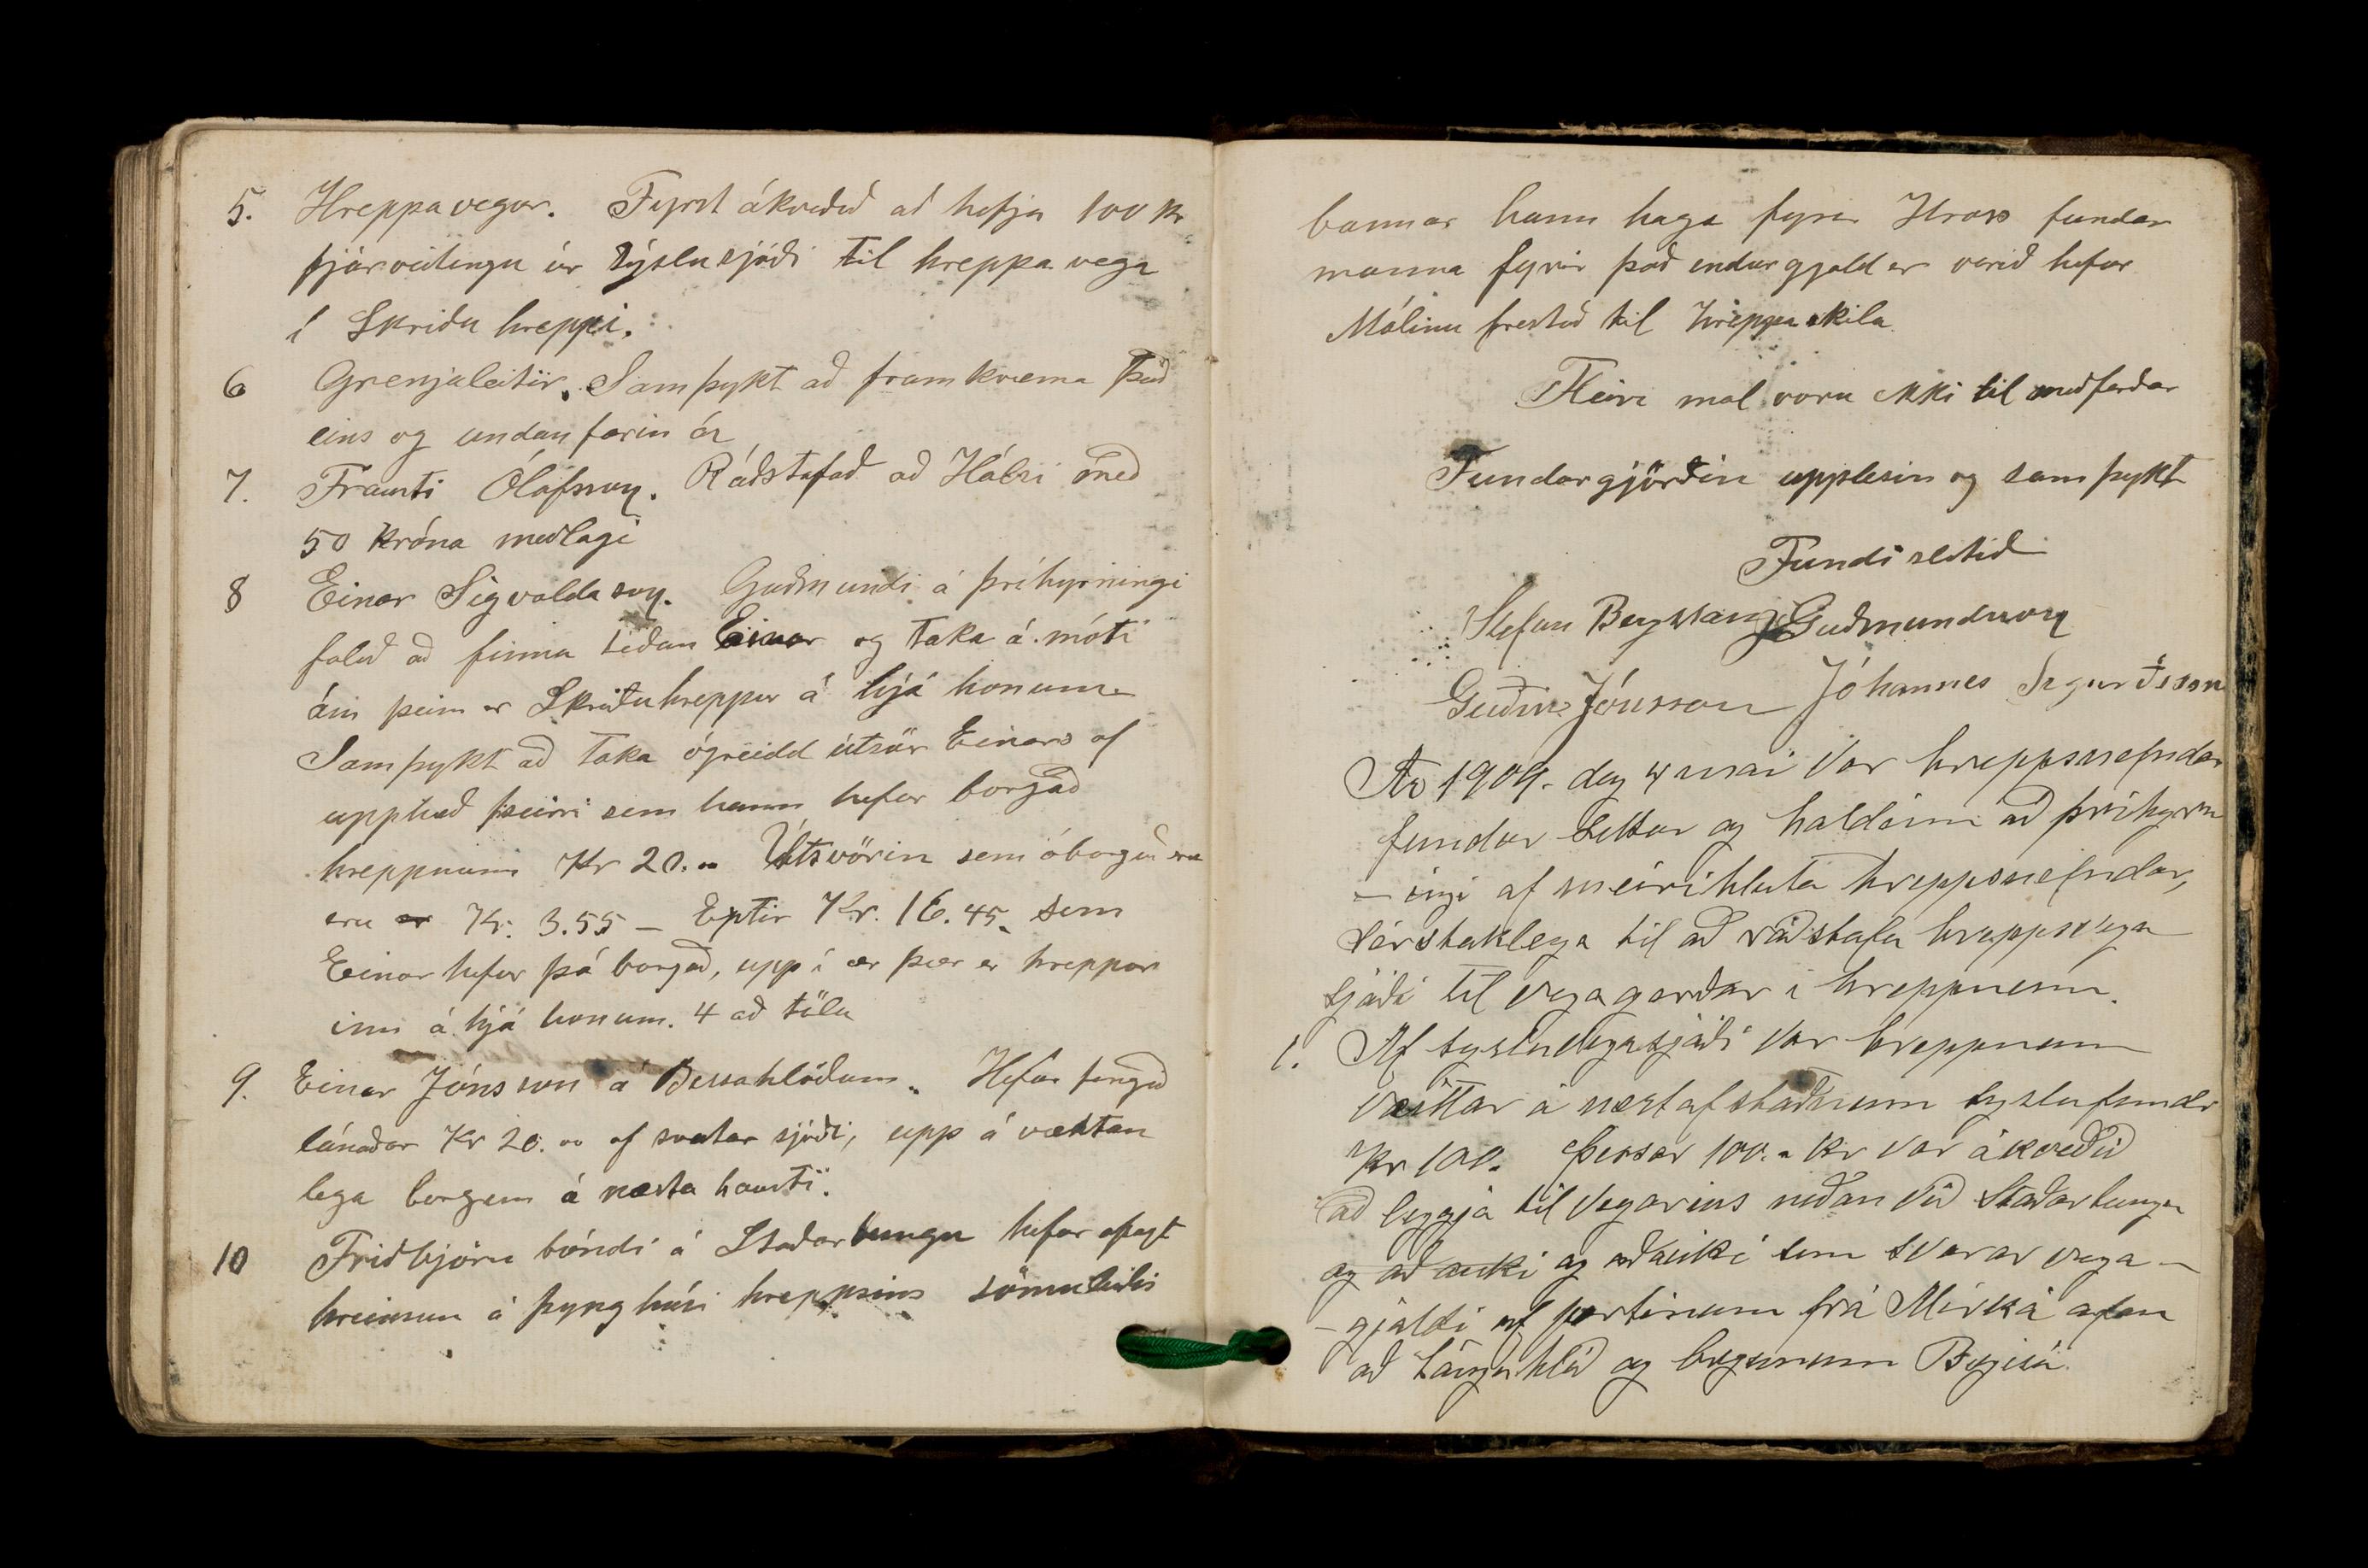 5. Hreppavegur. Fyrst ákveðið að hefja 100 kr
fjárveitingu úr Sýslusjóði til hreppavega
í Skriðu hreppi.
6 Grenjaleitir. Samþykt að framkvæma það
eins og undanfarin ár
7. Trausti Ólafsson. Ráðstafað að Hálsi með
50 króna meðlagi
8 Einar Sigvaldason. Guðmundi á þríhyrningi
falið að finna téðan Einar og taka á móti
ám þeim er Skriðuhreppur á hjá honum.
Samþykt að taka ógreidd útsvör Einars af
upphæð þeirri sem hann hefur borgað
hreppnum Kr 20.00 Útsvörin sem óborguð eru
eru Kr. 3.55 — Eptir Kr. 16.45 sem
Einar hefur þá borgað, upp í ær þær er hreppur
inn á hjá honum. 4 að tölu
9. Einar Jónsson á Bessahlöðum. Hefur fengið
lánaðar Kr 20.00 af sveitar sjóði, upp á væntan
lega borgun á næsta hausti.
10 Friðbjörn bóndi á Staðartungu hefur afsagt
hreinsun á þinghúsi hreppsins sömuleiðis
bannar hann haga fyrir Hross fundar
manna fyrir það endurgjald er verið hefur
Málinu frestað til hreppaskila.
Fleiri mál voru ekki til meðferðar
Fundargjörðin upplesin og samþykt
Fundi slitið
Stefán Bergsson Guðmundsson
Guðm. Jónsson Jóhannes Sigurðsson
Ár 1909. dag 4 maí Var hreppsnefndar
fundur Settur og haldinn að þríhyrn
– ingi af meirihluta hreppsnefndar,
Sérstaklega til að ráðstafa hreppsvega
sjóði til vegagerðar í hreppnum.
1. Af sysluvegasjóði Var hreppnum
Veittar á nýafstaðnum syslufundi
Kr 100. Þessar 100.- Kr Var ákveðið
að leggja til Vegarins neðan Við Staðartungu
og að auki og aðauki sem svarar vega –
– gjaldi af partinum frá Mirká ofan
að Lánguhlíð og bæjunum Bægisá